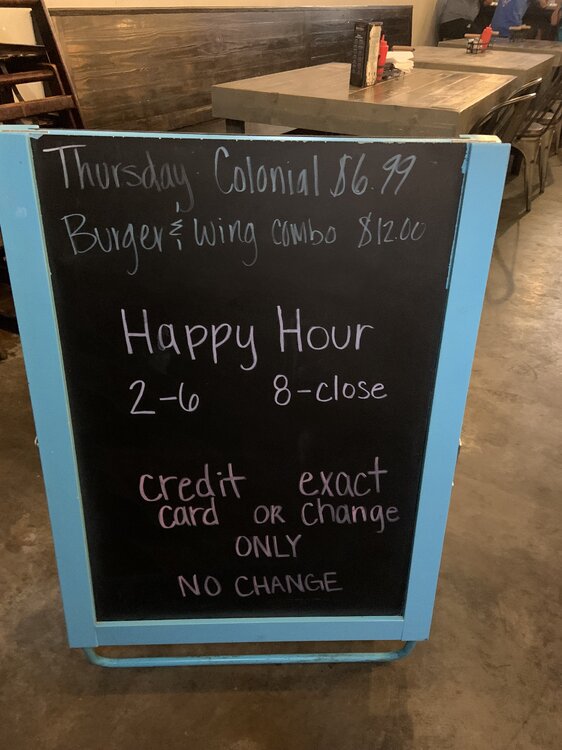 Thursday Colonial $6.99
Burger & Wing combo $12.00
Happy Hour
2-6 8-close
credit exact
card OR change
ONLY
NO CHANGE